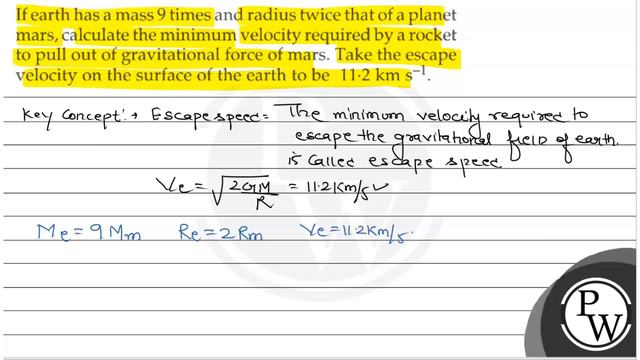 If earth has a mass 9 times and radius twice that of a planet
mars, calculate the minimum velocity required by a rocket
to pull out of gravitational force of mars. Take the escape
velocity on the surface of the earth to be 11·2 km s⁻¹.
Key Concept :→ Escape speed = The minimum velocity required to
escape the gravitational field of earth.
is called escape speed
Ve = √(2GM/R) = 11.2 Km/s ✓
Me = 9 Mm Re = 2 Rm Ve = 11.2 Km/s.
P
W